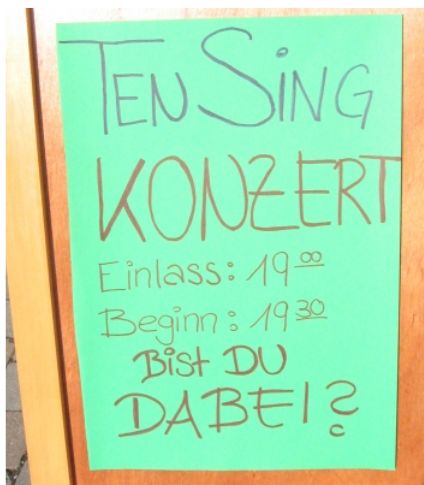 TEN SING
KONZERT
Einlass: 19 00
Beginn: 19 30
BiSt DU
DABEI?